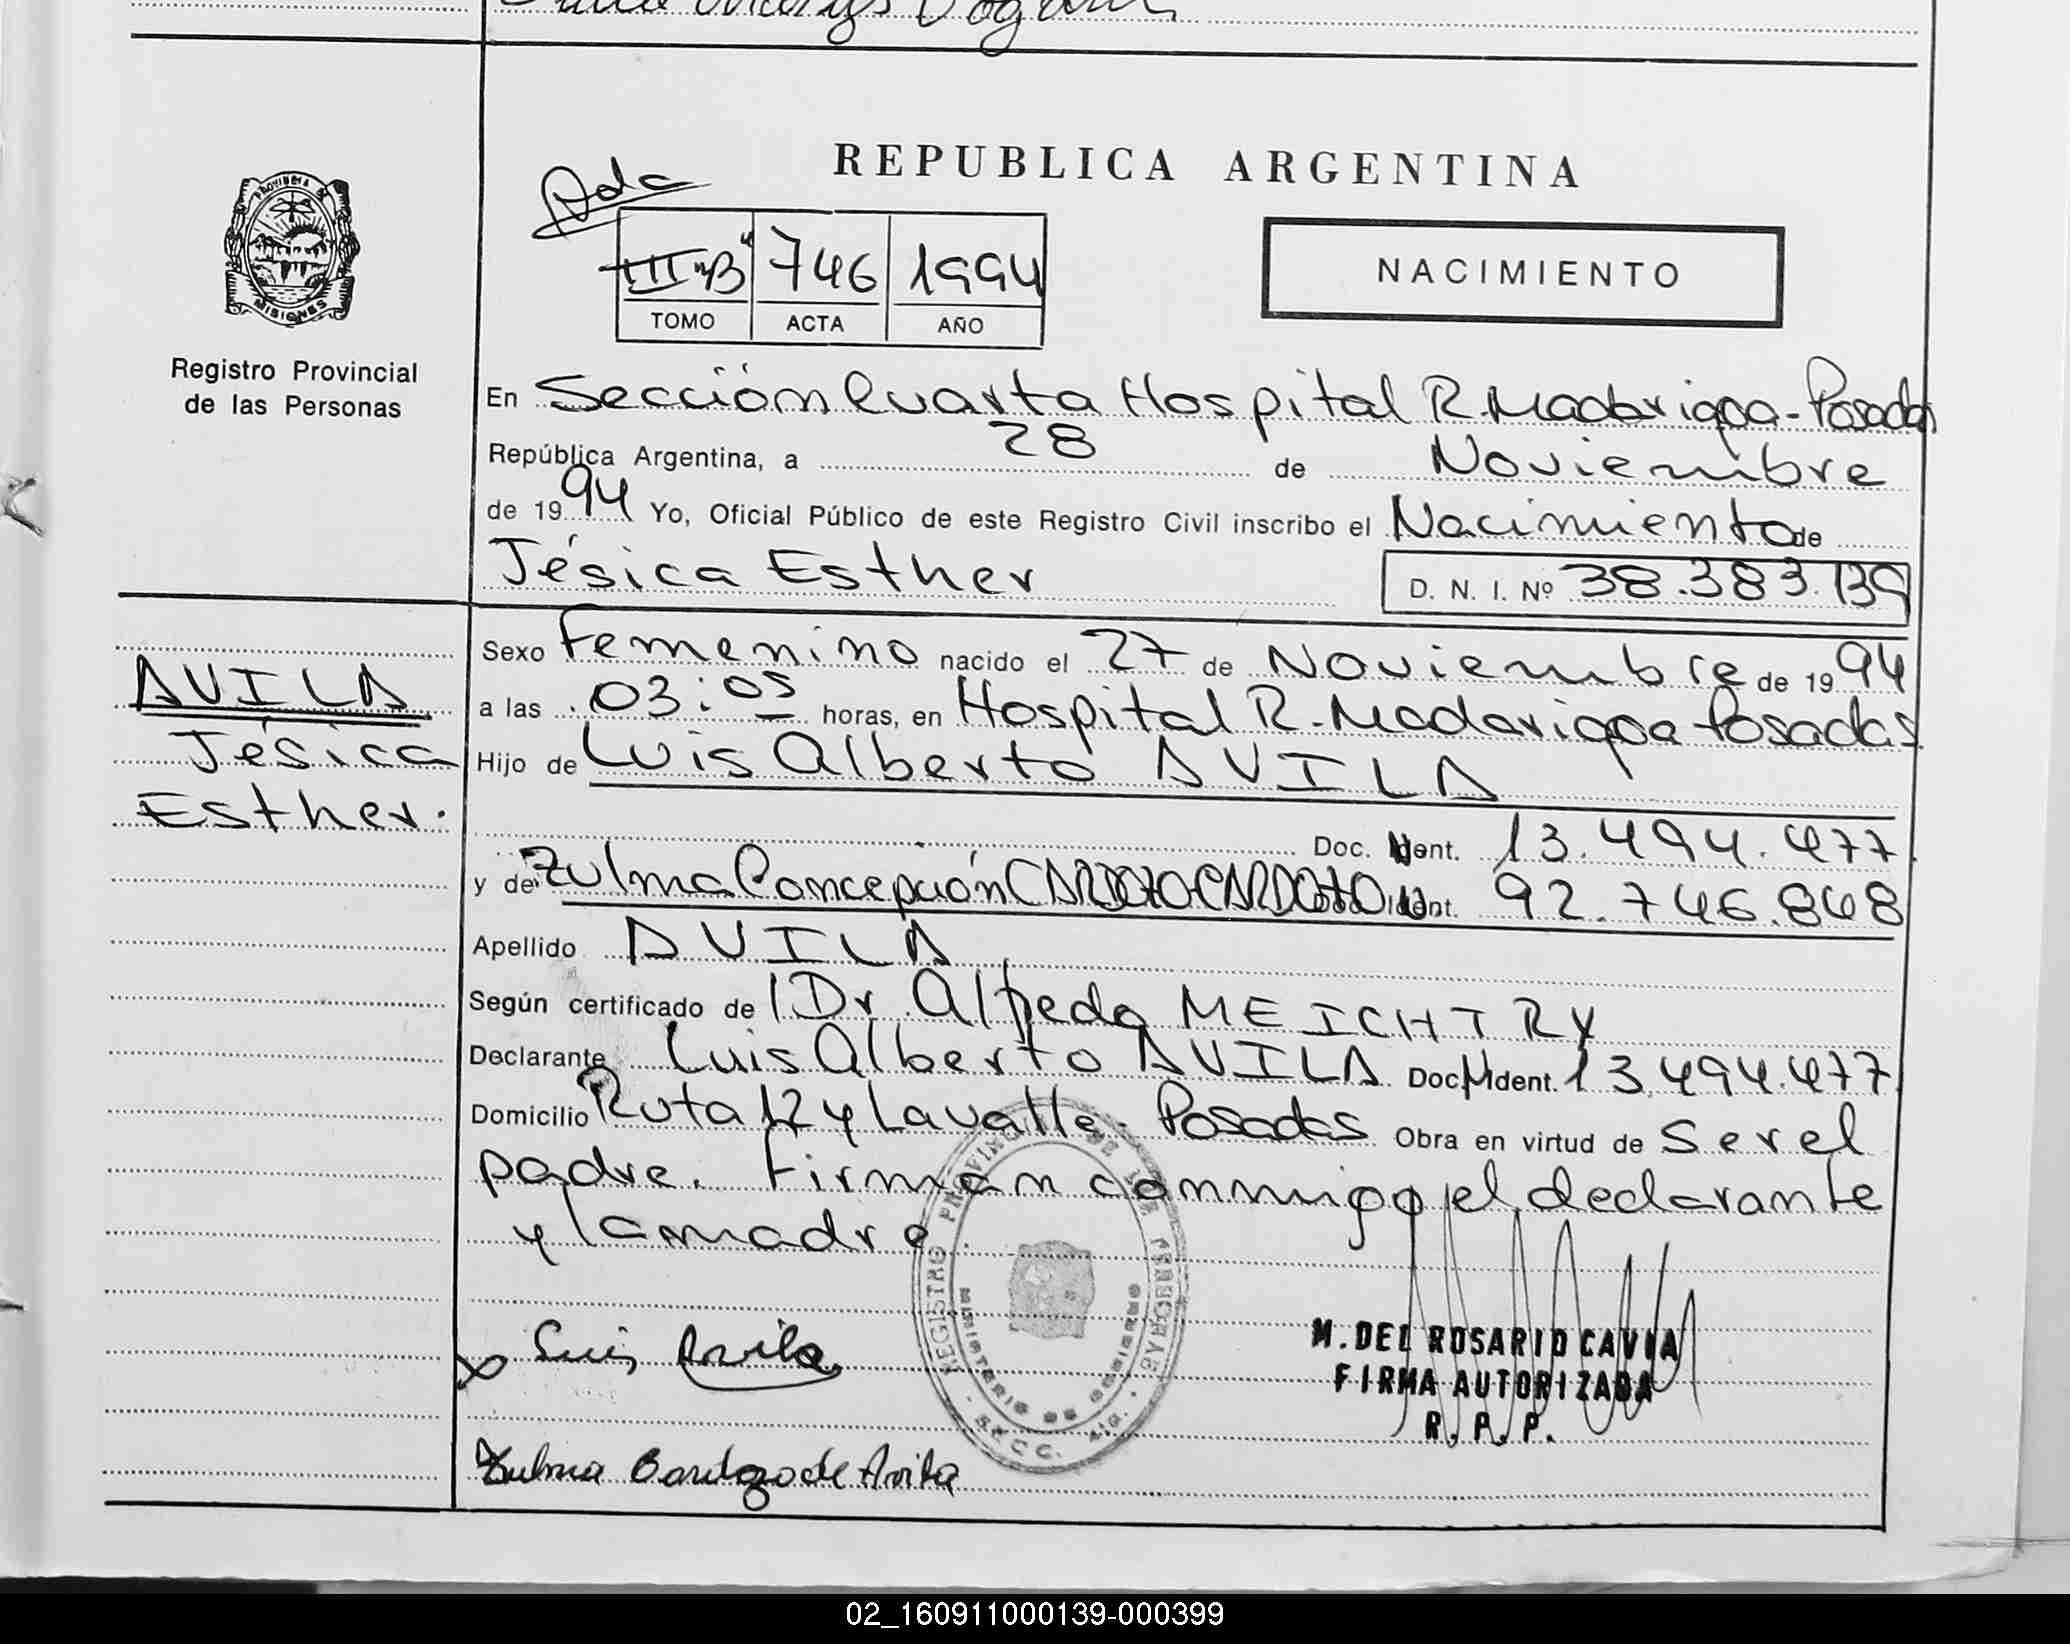 REPUBLICA ARGENTINA
Ada
III "B" 746 1994
TOMO ACTA AÑO
NACIMIENTO
PROVINCIA DE
MISIONES
Registro Provincial
de las Personas
En Sección Cuarta Hospital R. Madariaga - Posadas
República Argentina, a 28 de Noviembre
de 1994 Yo, Oficial Público de este Registro Civil inscribo el Nacimiento de
Jésica Esther
D. N. I. Nº 38.383.139
AVILA
Jésica
Esther.
Sexo Femenino nacido el 27 de Noviembre de 1994
a las 03:05 horas, en Hospital R. Madariaga Posadas
Hijo de Luis Alberto AVILA
Doc. Ident. 13.494.477
y de Zulma Concepción CARDOZO CARDOZO Ident. 92.746.848
Apellido AVILA
Según certificado de Dr. Alfredo MEICHTRY
Declarante Luis Alberto AVILA Doc. Ident. 13.494.477
Domicilio Ruta 12 y Lavalle - Posadas Obra en virtud de Ser el
padre. Firman conmigo el declarante
y la madre.
REGISTRO PROVINCIAL DE LAS PERSONAS
MINISTERIO DE GOBIERNO
Luis Avila
M. DEL ROSARIO CAVIA
FIRMA AUTORIZADA
R. P. P.
Zulma Cardozo de Avila
02_160911000139-000399